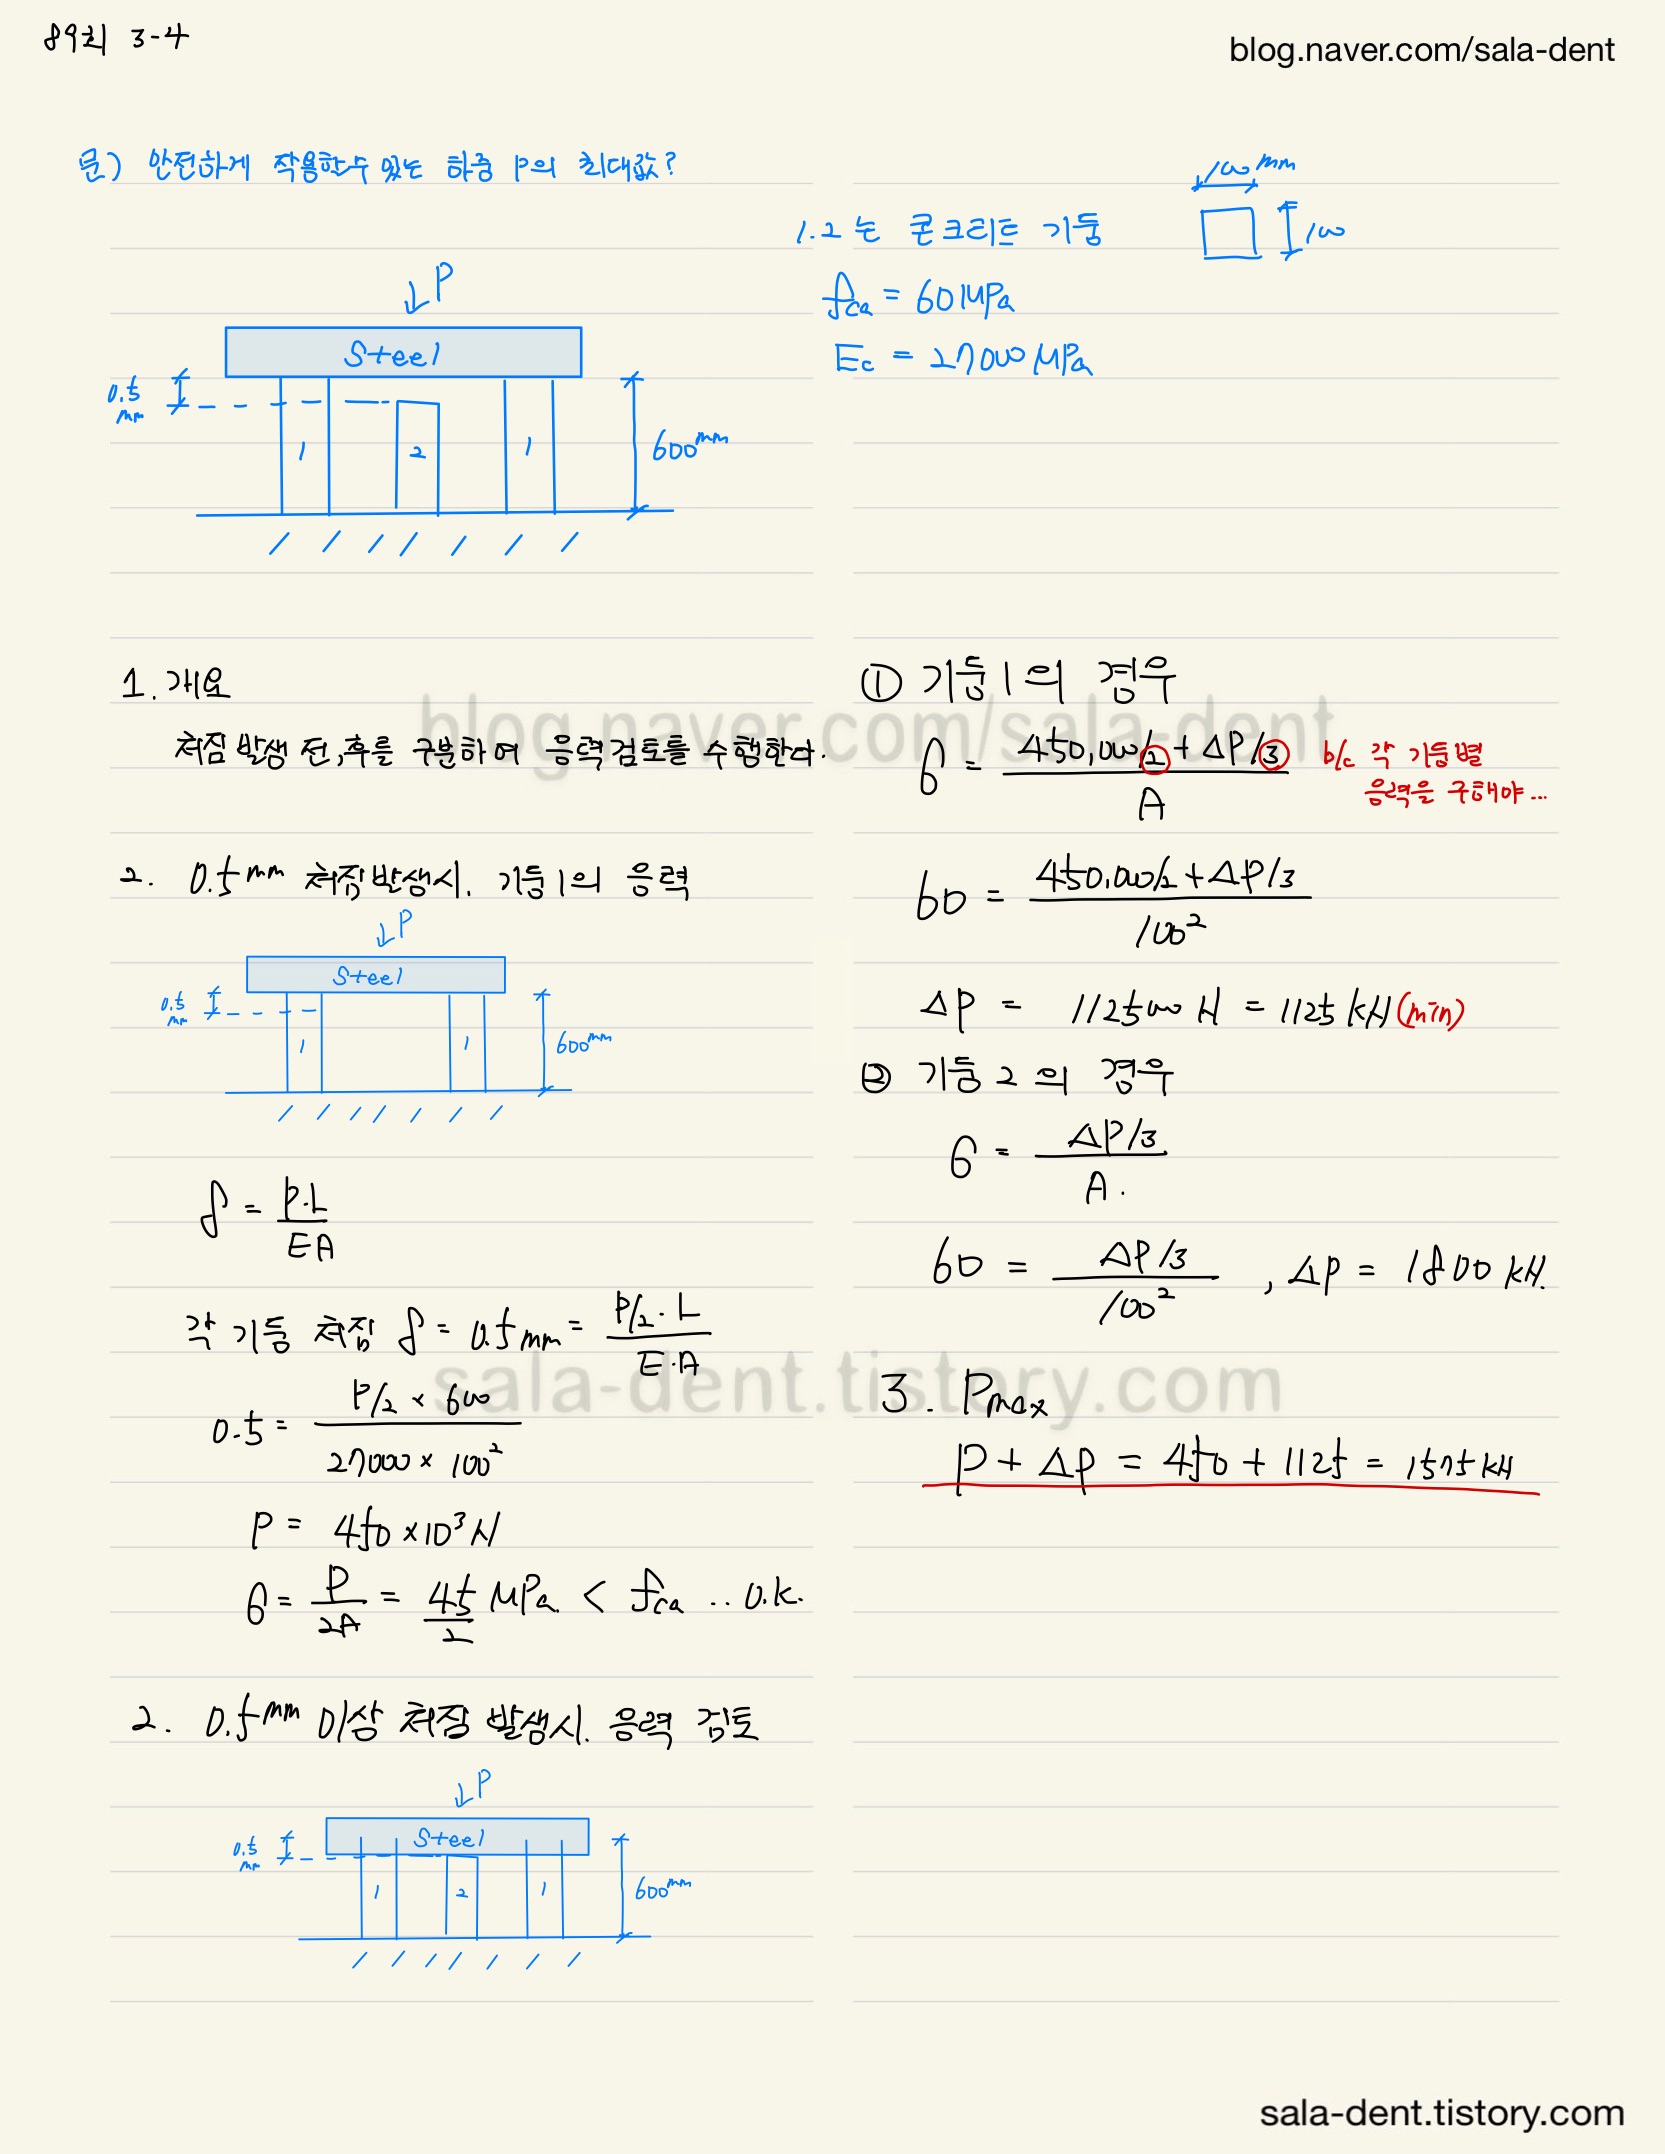 89회 3-4
blog.naver.com/sala-dent
문) 안전하게 작용할수 있는 하중 P의 최대값?
100 mm
1.2는 콘크리트 기둥
100
fca = 60MPa
Ec = 27000 MPa
↓P
Steel
0.5 mm
1
2
1
600mm
1. 개요
처짐 발생 전,후를 구분하여 응력검토를 수행한다.
2. 0.5mm 처짐발생시. 기둥1의 응력
↓P
Steel
0.5 mm
1
1
600mm
δ = P.L / EA
각 기둥 처짐 δ = 0.5mm = P/2 . L / E.A
0.5 = P/2 × 600 / 27000 × 100²
P = 450 × 10³ N
σ = P / 2A = 45 / 2 MPa. < fca .. O.K.
2. 0.5mm 이상 처짐 발생시. 응력 검토
↓P
Steel
0.5 mm
1
2
1
600mm
① 기둥1의 경우
σ = 450,000/2 + ΔP/3 / A
b/c 각 기둥별
응력을 구해야...
60 = 450,000/2 + ΔP/3 / 100²
ΔP = 1125000 N = 1125 kN (min)
② 기둥 2의 경우
σ = ΔP/3 / A.
60 = ΔP/3 / 100² , ΔP = 1800 kN.
3. Pmax
P + ΔP = 450 + 1125 = 1575 kN
blog.naver.com/sala-dent
sala-dent.tistory.com
sala-dent.tistory.com